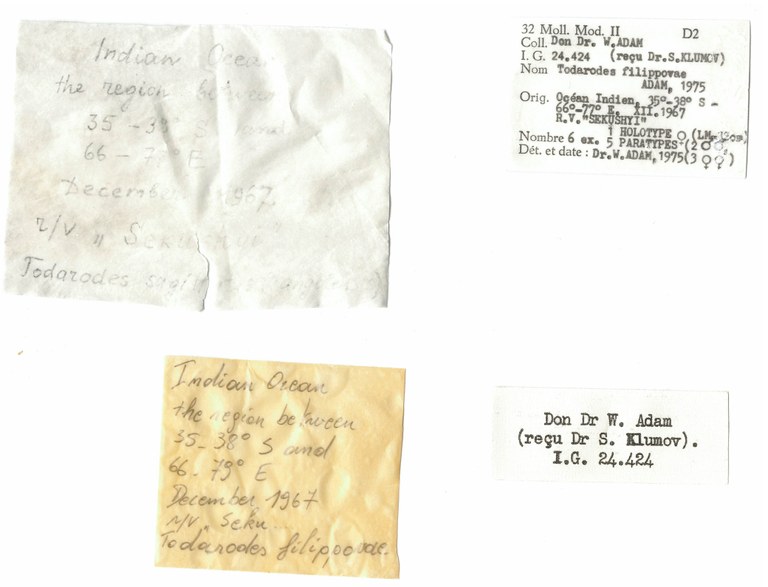 Indian Ocean
the region between
35 – 38° S and
66 – 77° E
December 1967
r/v "
Todarodes
32 Moll. Mod. II D2
Coll. Don Dr. W. ADAM
I. G. 24.424 (reçu Dr.S.KLUMOV)
Nom Todarodes filippovae
ADAM, 1975
Orig. Océan Indien, 35°-38° S -
66°-77° E. XII.1967
R.V."SEKUSHYI"
1 HOLOTYPE ♀ (LM=
Nombre 6 ex. 5 PARATYPES (2 ♂
Dét. et date : Dr.W.ADAM,1975(3 ♀♀)
Indian Ocean
the region between
35-38° S and
66-79° E
December, 1967
r/v „ Seku...
Todarodes filippovae.
Don Dr W. Adam
(reçu Dr S. Klumov).
I.G. 24.424